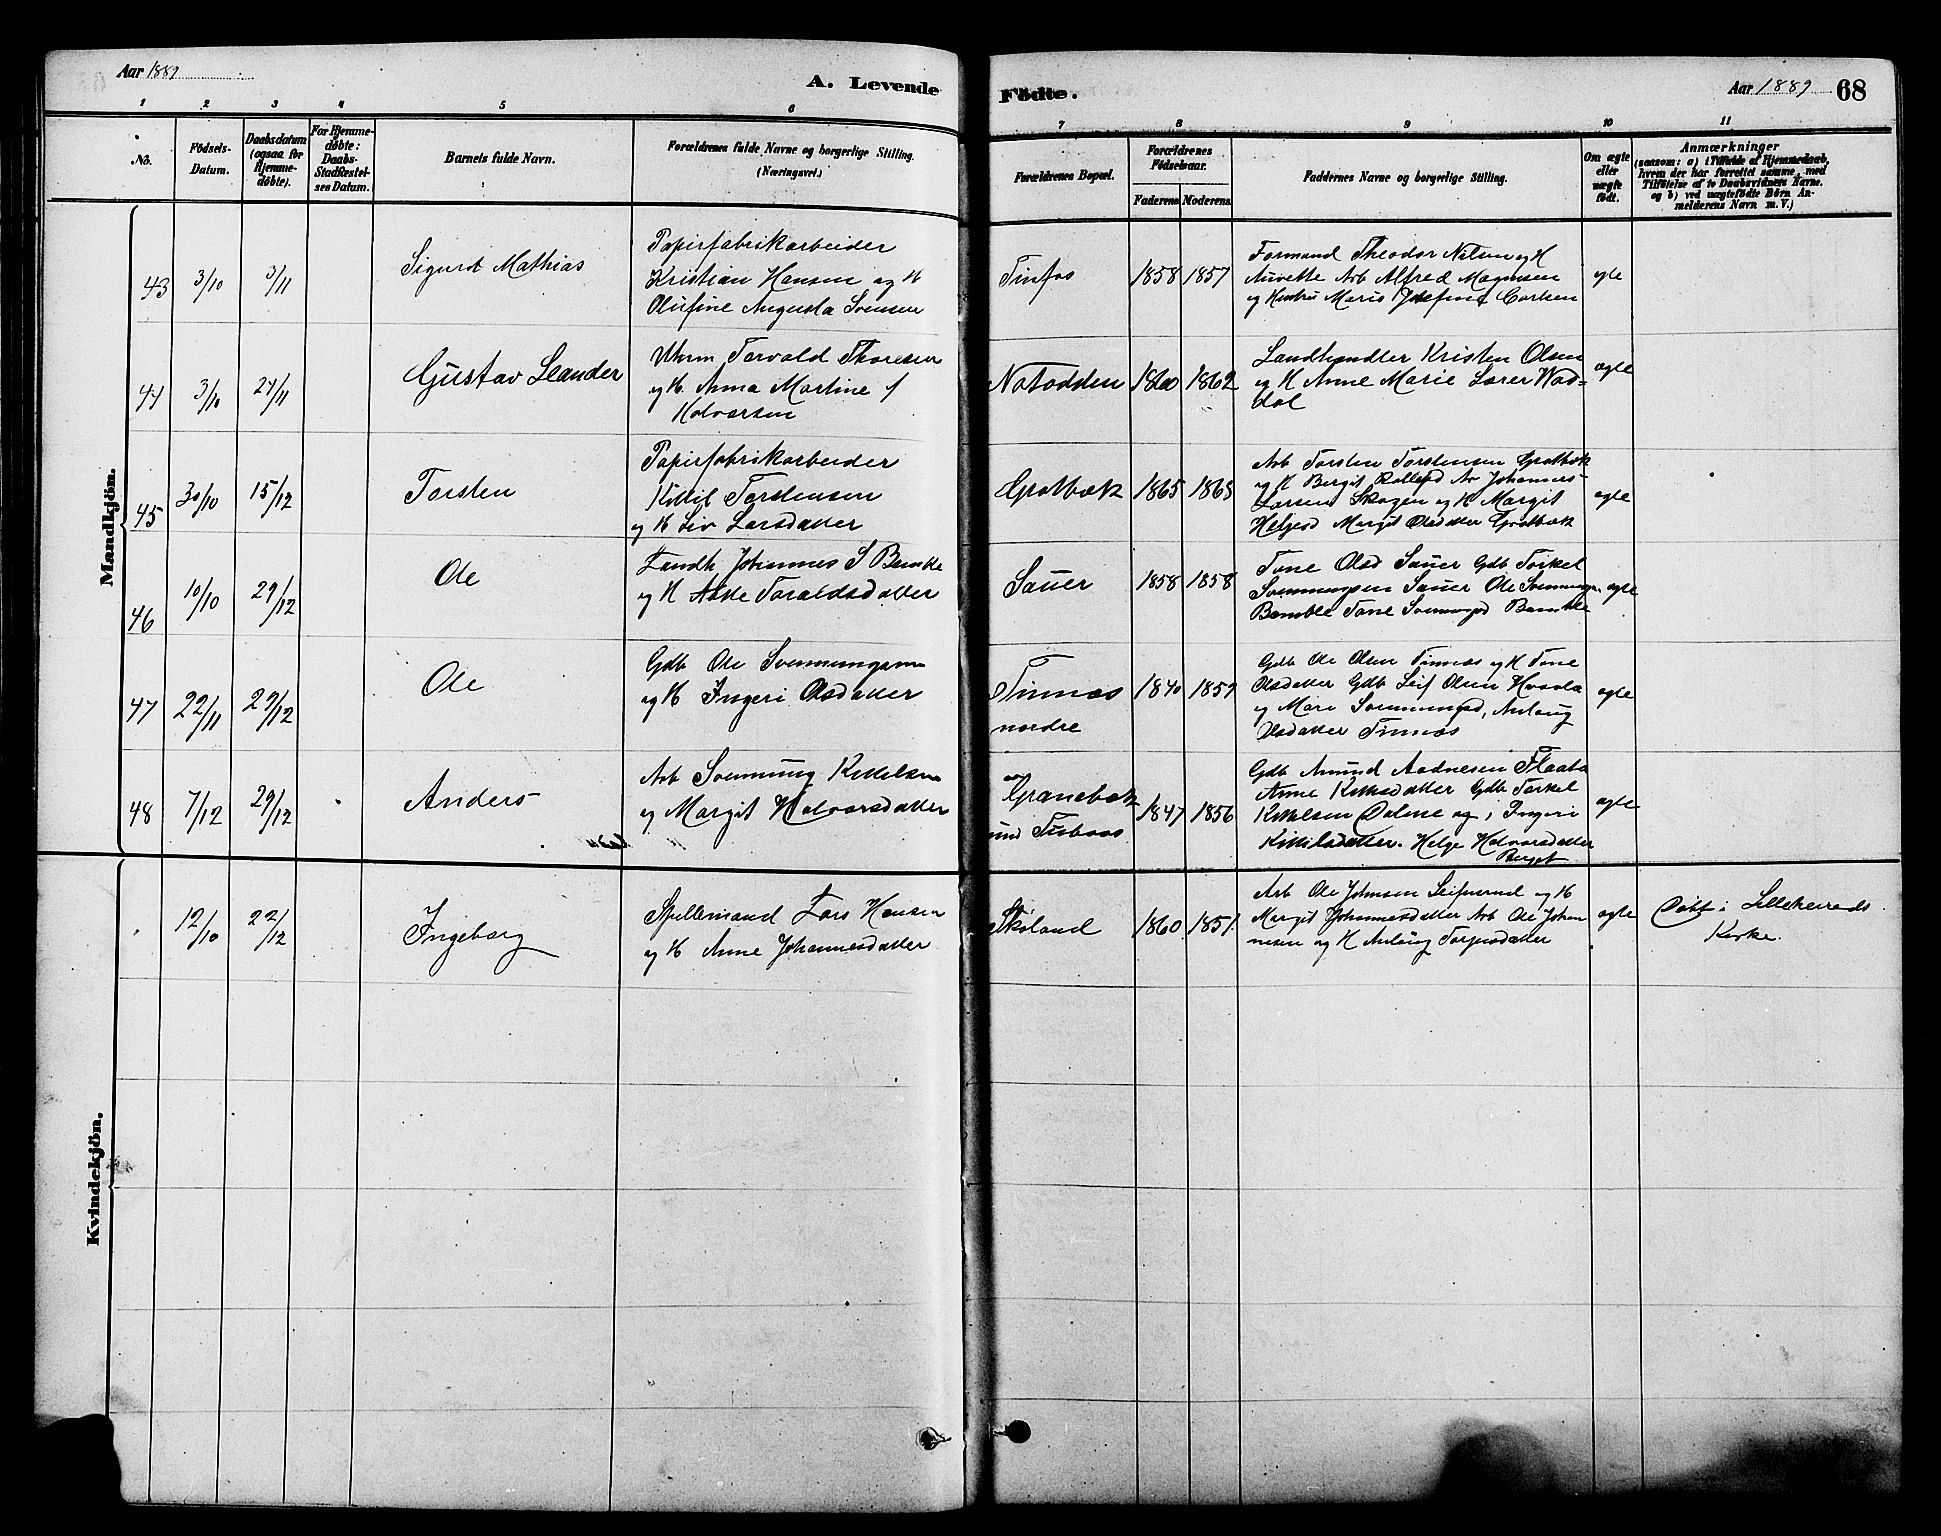 Aar 1889
A. Levende
Födte.
Aar 1889
68
1 2 3 4 5 6 7 8 9 10 11
No.
Födsels-
Datum.
Daabsdatum
(ogsaa for
Hjemme-
döbte).
For Hjemme-
döbte:
Daabs-
Stadfæstel-
ses Datum.
Barnets fulde Navn.
Forældrenes fulde Navne og borgerlige Stilling.
(Næringsvei.)
Forældrenes Bopæl.
Forældrenes
Födselsaar.
Faderens Moderens
Faddernes Navne og borgerlige Stilling.
Om ægte
eller
uægte
födt.
Anmærkninger
(saasom: a) i Tilfælde af Hjemmedaab,
hvem der har forrettet samme, med
Tilföielse af to Daabsvidners Navne.
og b) ved uægtefödte Börn An-
melderens Navn m. V.)
Mandkjön.
43
3/10
3/11
Sigurd Mathias
Papirfabrikarbeider
Kristian Hansen og H
Olufine Augusta Svensen
Tinfos
1858
1857
Formand Theodor Nilsen og H
Arb Alfred Magnusen
og Hustru Maris Josefine Carlsen
ægte
44
3/10
24/11
Gustav Leander
Uhrm Torvald Thoresen
og H. Anna Martine
Holvorsen
Notodden
1860
1862
Landhandler Kristen Olsen
og H Anne Marie Lærer Wad-
dal
ægte
45
30/10
15/12
Torsten
Papirfabrikarbeider
Kittil Torstensen
og H Liv Larsdatter
Grotbæk
1865
1863
Arb Torsten Torstensen Grotbæk
og H Bergit Rollefsd Ar Johannes-
Larsen Skogen og H Margit
Helgesd Margit Olsdatter Grotbæk
ægte
46
10/10
29/12
Ole
Landh Johannes S Bamble
og H Aske Toraldsdatter
Sauer
1858
1858
Tone Olsd Sauer Gdb Torkel
Svennungsen Sauer Ole Svennungsn
Bamble Tone Svennungsd Bamble
ægte
47
22/11
29/12
Ole
Gdb Ole Svennungsen
og H Ingeri Olsdatter
Tinnæs
nordre
1840
1859
Gdb Ole Olsen Tinnæs og H Tone
Olsdatter Gdb Leif Olsen Hvaala
og Mari Svennungsd, Anlaug
Olsdatter Tinnæs
ægte
48
7/12
29/12
Anders
Arb Svennung Kittilsen
og Margit Holvorsdatter
Granebæk
und
1847
1856
Gdb Amund Aadnesen Flaata
Anne Kittilsdatter Gdb Torkel
Kittilsen og Ingeri
Kittilsdatter. Helge Holvorsdatter
Berget
ægte
Kvindekjön.
12/10
22/12
Ingeborg
Spillemand Lars Hansen
og H Anne Johannesdatter
Skoland
1860
1851
Arb Ole Johnsen Leifsrud og H
Margit Johannesdatter Arb Ole Johan
nesen og H Anlaug Torjusdatter
ægte
Döbt i Lilleherreds
Kirke.